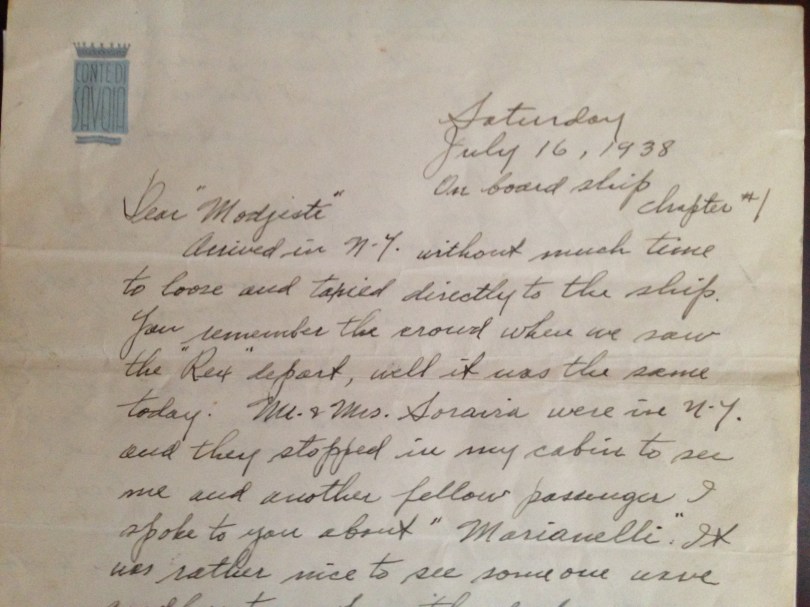 CONTE DI
SAVOIA
Saturday
July 16, 1938
On board ship
Chapter #1
Dear "Modjeste"
Arrived in N-Y. without much time
to loose and taxied directly to the ship.
You remember the crowd when we saw
the "Rex" depart, well it was the same
today. Mr. & Mrs. were in N-Y.
and they stopped in my cabin to see
me and another fellow passenger I
spoke to you about "Marianelli". It
was rather nice to see someone wave